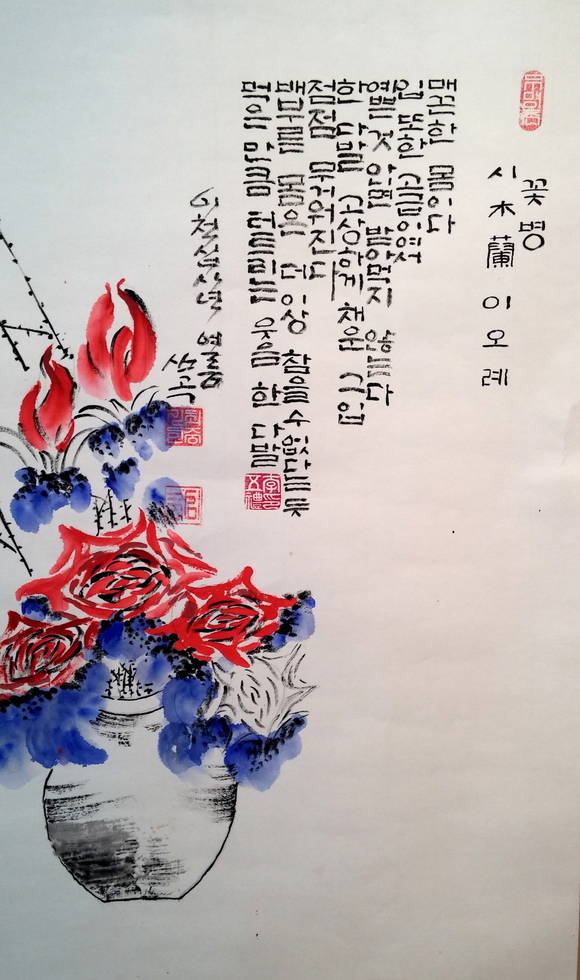 꽃병
시 木蘭 이오례
매끈한 몸이다
입 또한 고급이어서
예쁜 것 아니면 받아먹지 않는다
한 다발 고상하게 채운 그 입
점점 무거워진다
배부른 몸은 더 이상 참을 수 없다는 듯
먹은 만큼 터트리는 웃음 한 다발
이천십사년 여름